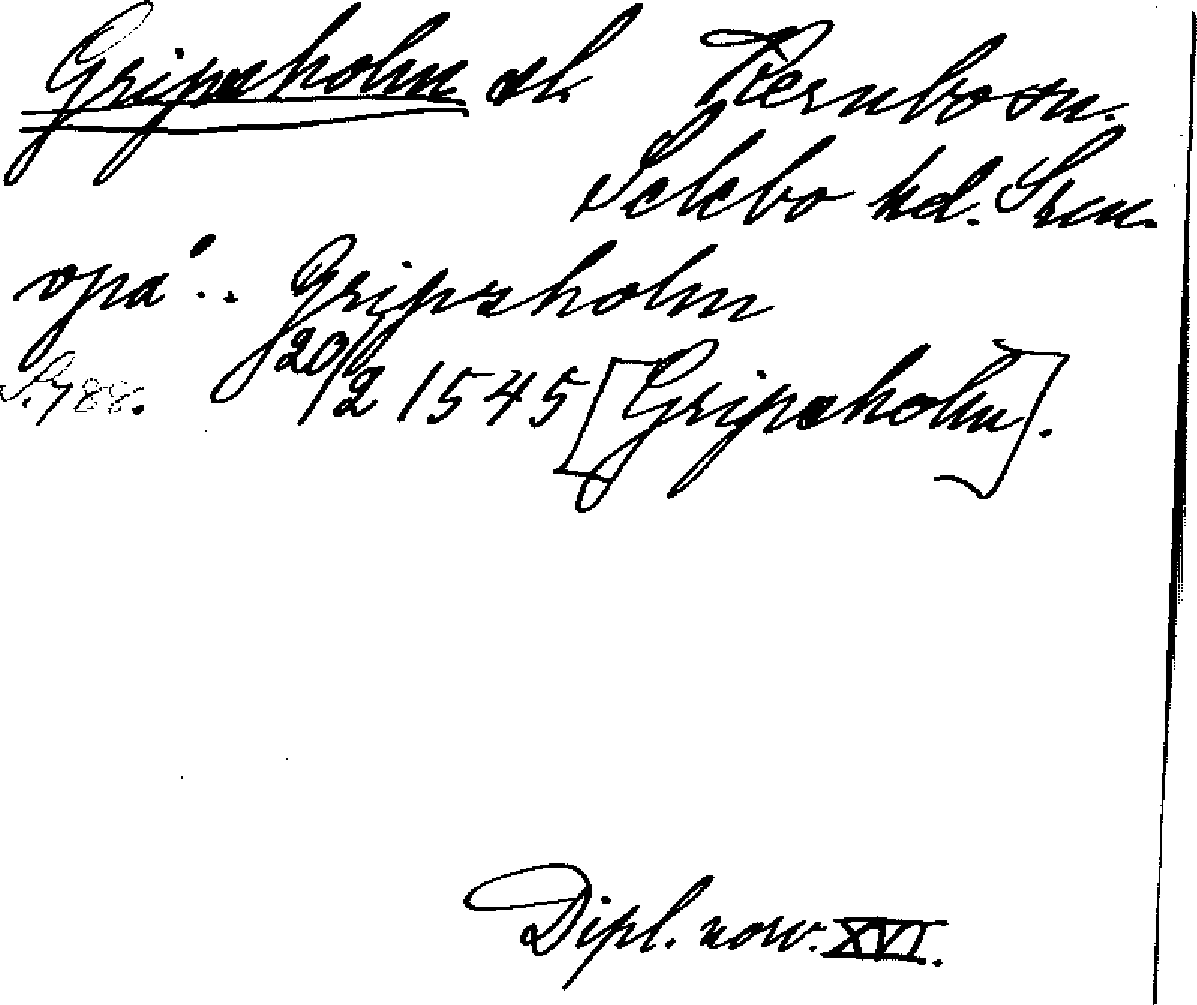 Gripsholm sl. Kernbo sn.
Selebo hd. Srm.
vpå .. Gripsholm
S. 788. 20/2 1545 [Gripsholm].
Dipl. norv. XVI.